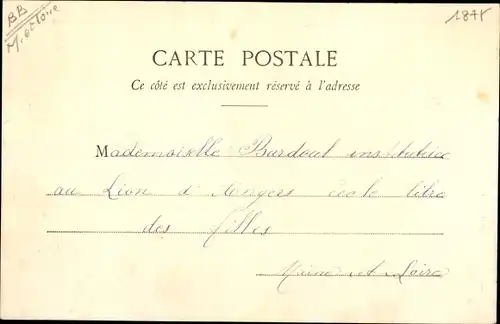 BB
M. et Loire
1871
CARTE POSTALE
Ce côté est exclusivement réservé à l'adresse
Mademoiselle Bardoul institutrice
au Lion d'Angers école libre
des filles
Maine et Loire